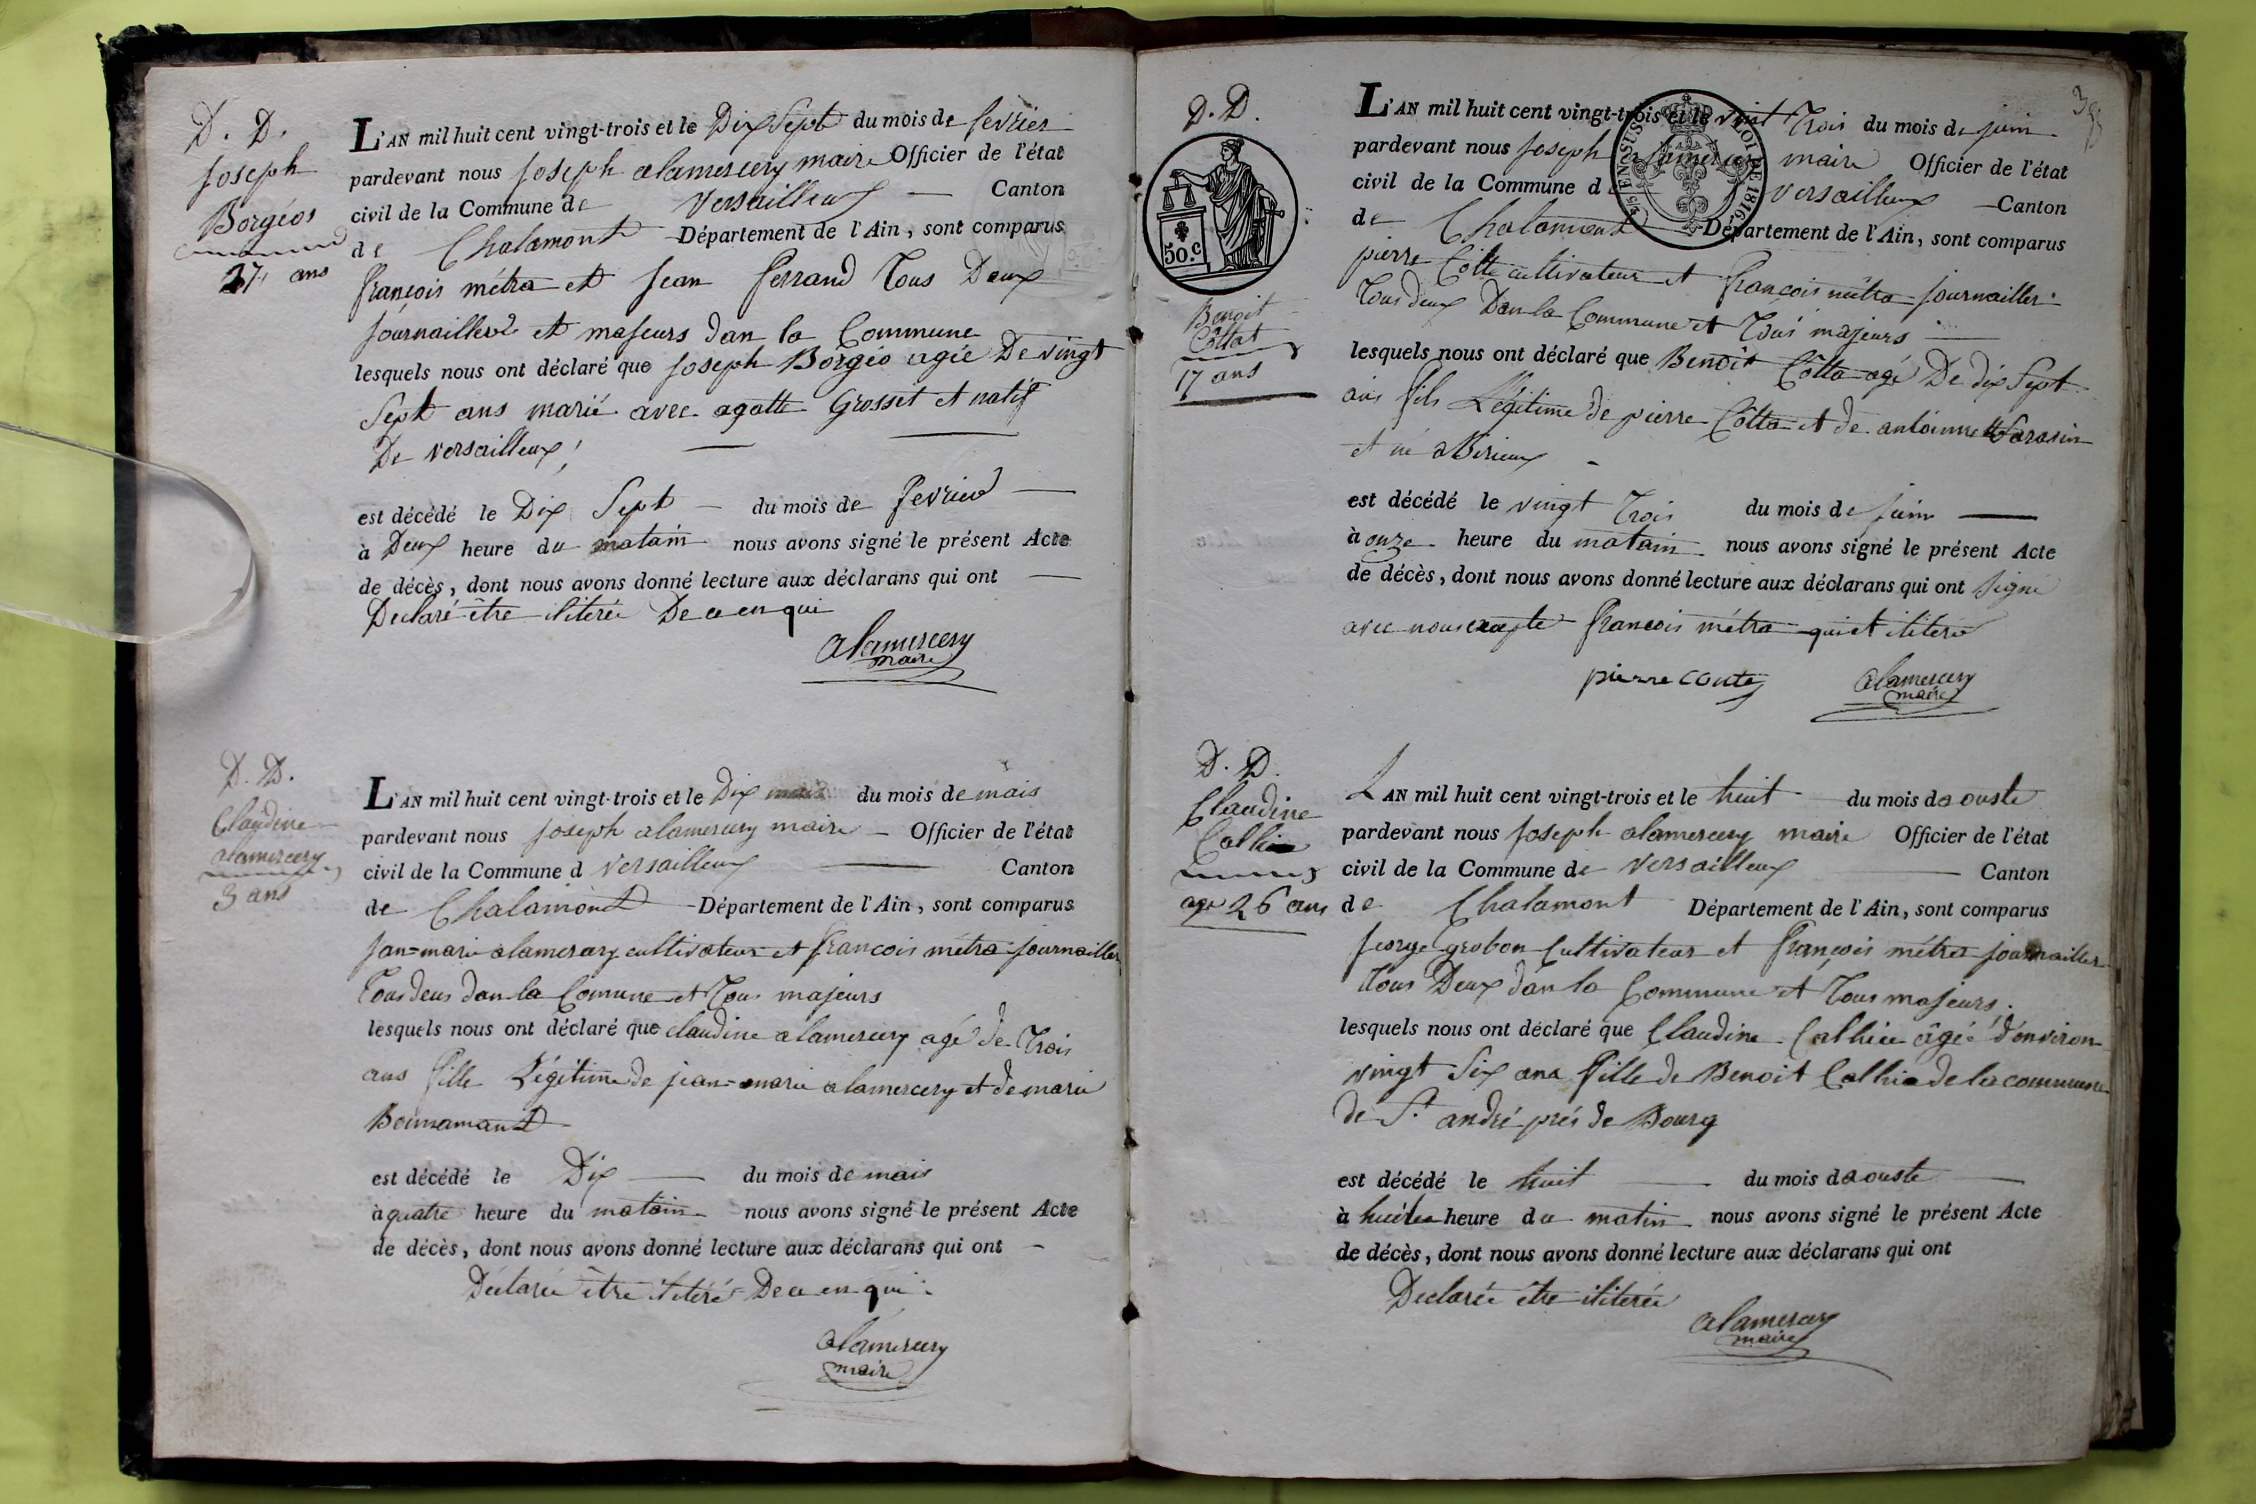 D. D.
Joseph
Borgéos
27 ans
L'AN mil huit cent vingt-trois et le Dix Sept du mois de fevrier
pardevant nous Joseph alamercery maire Officier de l'état
civil de la Commune de Versailleux Canton
de Chalamont Département de l'Ain, sont comparus
françois métra et Jean ferrand Tous Deux
Journaillers et majeurs dan la Commune
lesquels nous ont déclaré que Joseph Borgéo agée De vingt
Sept ans marié avec agatte Grosset et natif
De versailleux
est décédé le Dix Sept du mois de fevrier
à Deux heure du matain nous avons signé le présent Acte
de décès, dont nous avons donné lecture aux déclarans qui ont
Declaré être iliterée De ce enqui
alamercery
maire
D. D.
Claudine
alamercery
3 ans
L'AN mil huit cent vingt-trois et le Dix mais du mois de mais
pardevant nous Joseph alamercery maire Officier de l'état
civil de la Commune d versailleux Canton
de Chalamont Département de l'Ain, sont comparus
Jan=marie alamercery cultivateur et francois métra journailler
Tous deus dan la Comune et Tous majeurs
lesquels nous ont déclaré que claudine alamercery agé de Trois
ans fille Légitime de jean=marie alamercery et de marie
Bonnamant
est décédé le Dix du mois de mais
à quatre heure du matain nous avons signé le présent Acte
de décès, dont nous avons donné lecture aux déclarans qui ont
Déclarée être iliteré De ce enqui
alamercery
maire
D. D.
50. C
Benoit
Cottat
17 ans
EN SUS LOI DE 1816.
L'AN mil huit cent vingt-trois et le vint Trois du mois de juin
pardevant nous Joseph alamercery maire Officier de l'état
civil de la Commune de Versailleux Canton
de Chalamont Département de l'Ain, sont comparus
pierre Cotta cultivateur et françois métra journailler
Tous deux Dan la Commune et Tous majeurs
lesquels nous ont déclaré que Benoit Cotta agé De dix Sept
ans fils Légitime de pierre Cotta et de antoinne
et né a Birieux
est décédé le vingt Trois du mois de juin
à onze heure du matain nous avons signé le présent Acte
de décès, dont nous avons donné lecture aux déclarans qui ont signé
avec nous excepte francois métra qui et iliteré
pierre conte
alamercery
maire
D. D.
Claudine
Calhie
age 26 ans
L'AN mil huit cent vingt-trois et le huit du mois d aouste
pardevant nous Joseph alamercery maire Officier de l'état
civil de la Commune de Versailleux Canton
de Chalamont Département de l'Ain, sont comparus
george grobon Cultivateur et françois métra journailler
Tous Deux dan la Commune et Tous majeurs
lesquels nous ont déclaré que Claudine Calhiee âgéé d'environ
vingt Six ans fille de Benoit Calhie de la commune
de St andré prés de Bourg
est décédé le huit du mois d aouste
à huit heure du matin nous avons signé le présent Acte
de décès, dont nous avons donné lecture aux déclarans qui ont
Declarée être iliterée
alamercery
maire